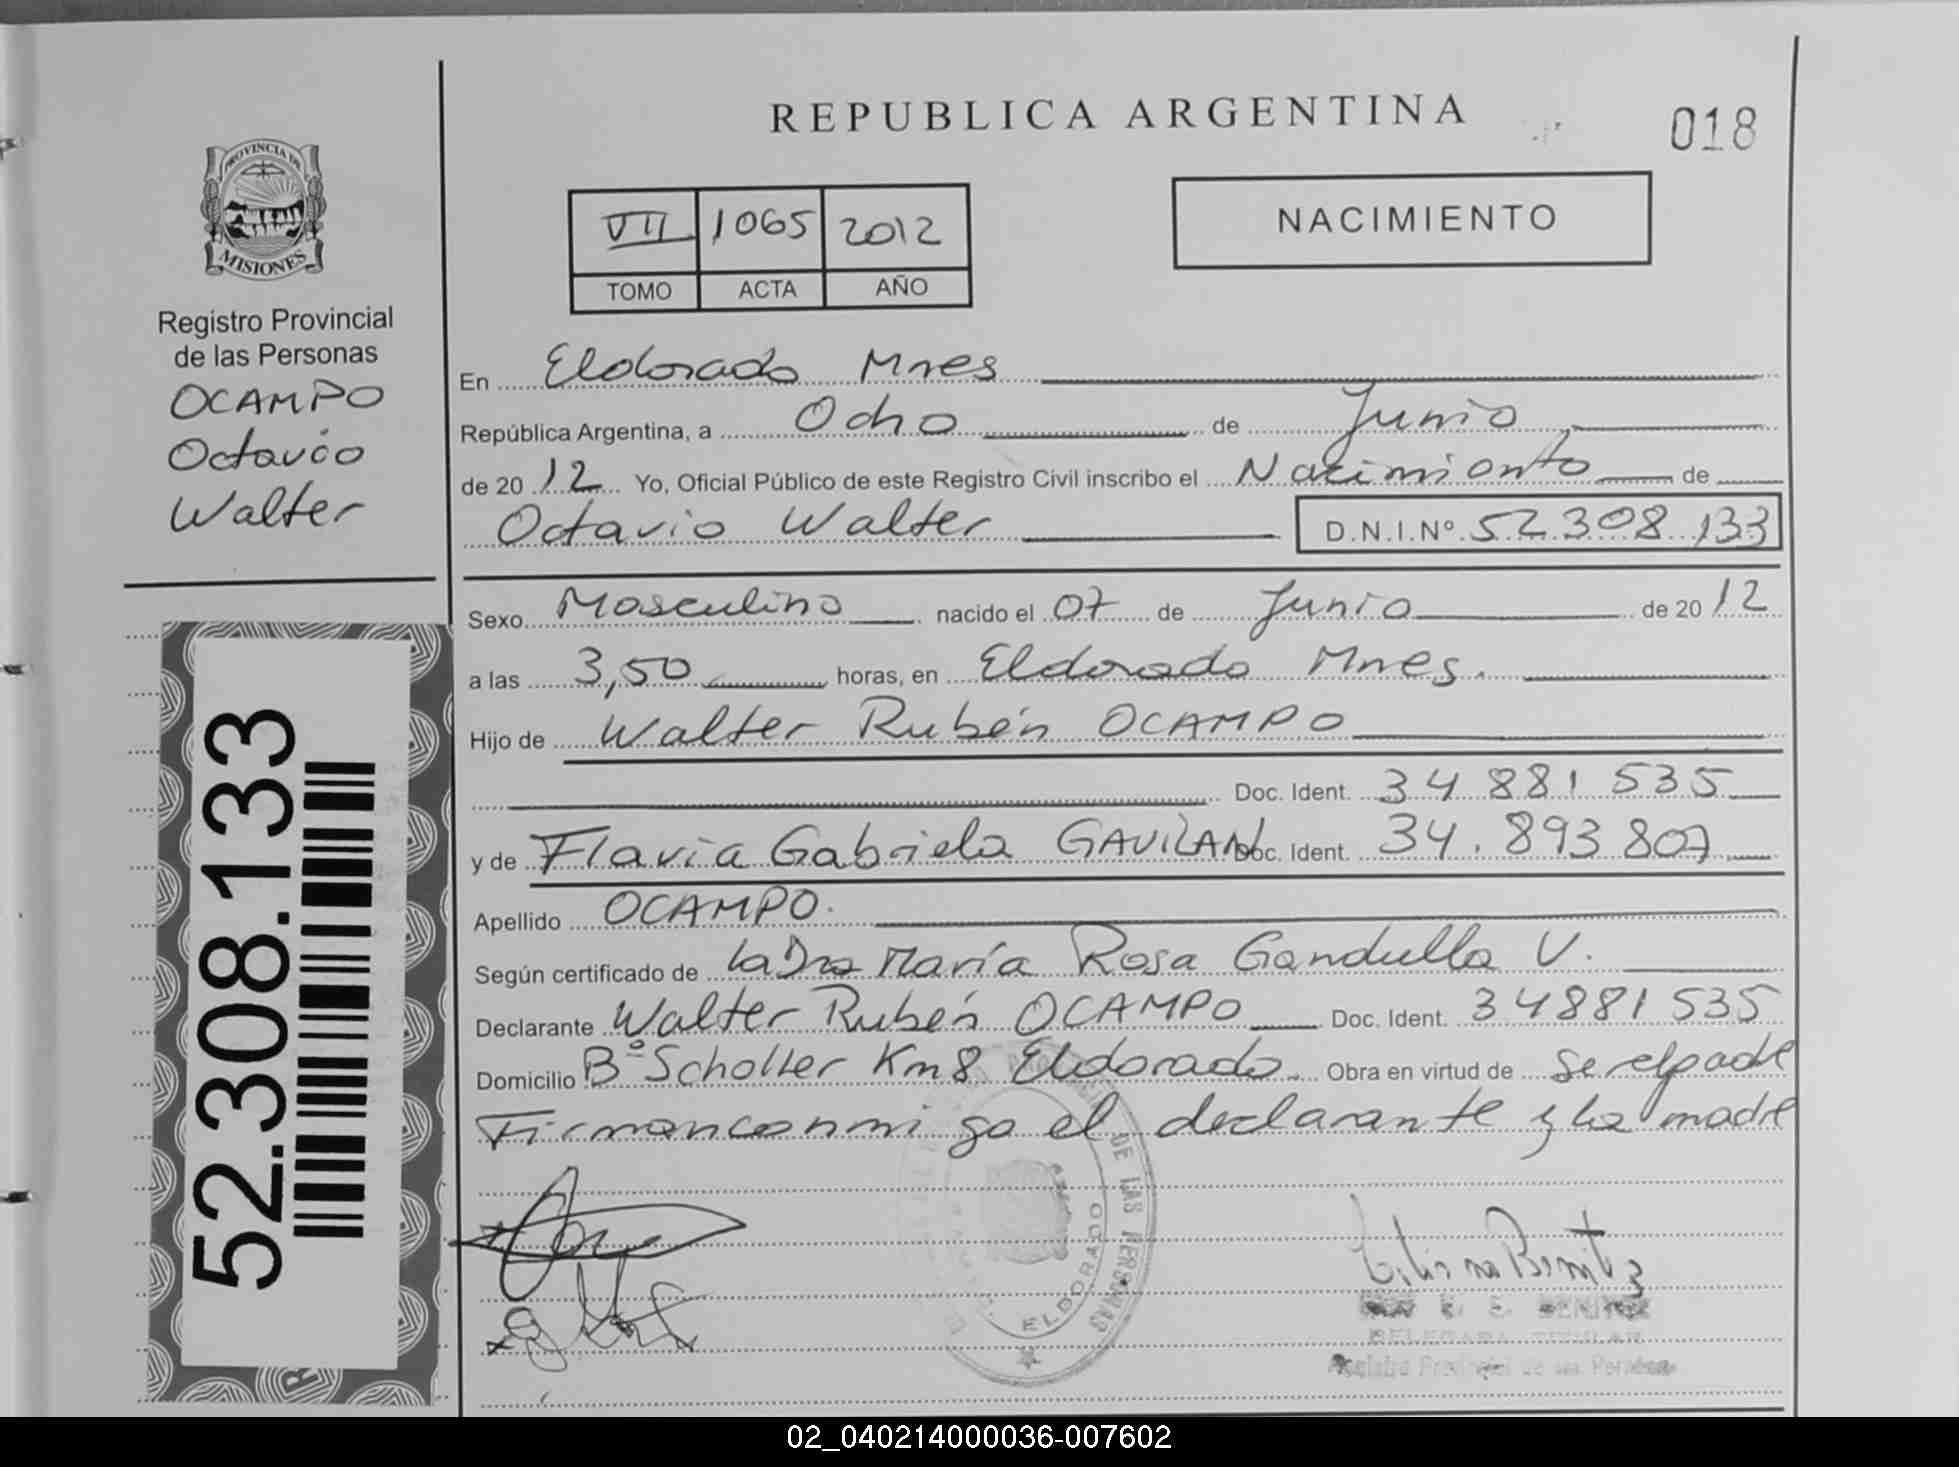 REPUBLICA ARGENTINA
018
PROVINCIA DE
MISIONES
Registro Provincial
de las Personas
OCAMPO
Octavio
Walter
52.308.133
VII 1065 2012
TOMO ACTA AÑO
NACIMIENTO
En Eldorado Mnes
República Argentina, a Ocho de Junio
de 2012 Yo, Oficial Público de este Registro Civil inscribo el Nacimiento de
Octavio Walter D.N.I.Nº 52.308.133
Sexo Masculino nacido el 07 de Junio de 2012
a las 3,50 horas, en Eldorado Mnes.
Hijo de Walter Rubén OCAMPO
Doc. Ident. 34 881 535
y de Flavia Gabriela GAVILAN Doc. Ident. 34.893 807
Apellido OCAMPO.
Según certificado de la Dra María Rosa Gandulla V.
Declarante Walter Rubén OCAMPO Doc. Ident. 34881535
Domicilio Bº Scholler Km 8 Eldorado. Obra en virtud de ser el padre
Firman conmigo el declarante y la madre
DE LAS PERSONAS
ELDORADO
DELEGADA TITULAR
Registro Provincial de las Personas
02_040214000036-007602